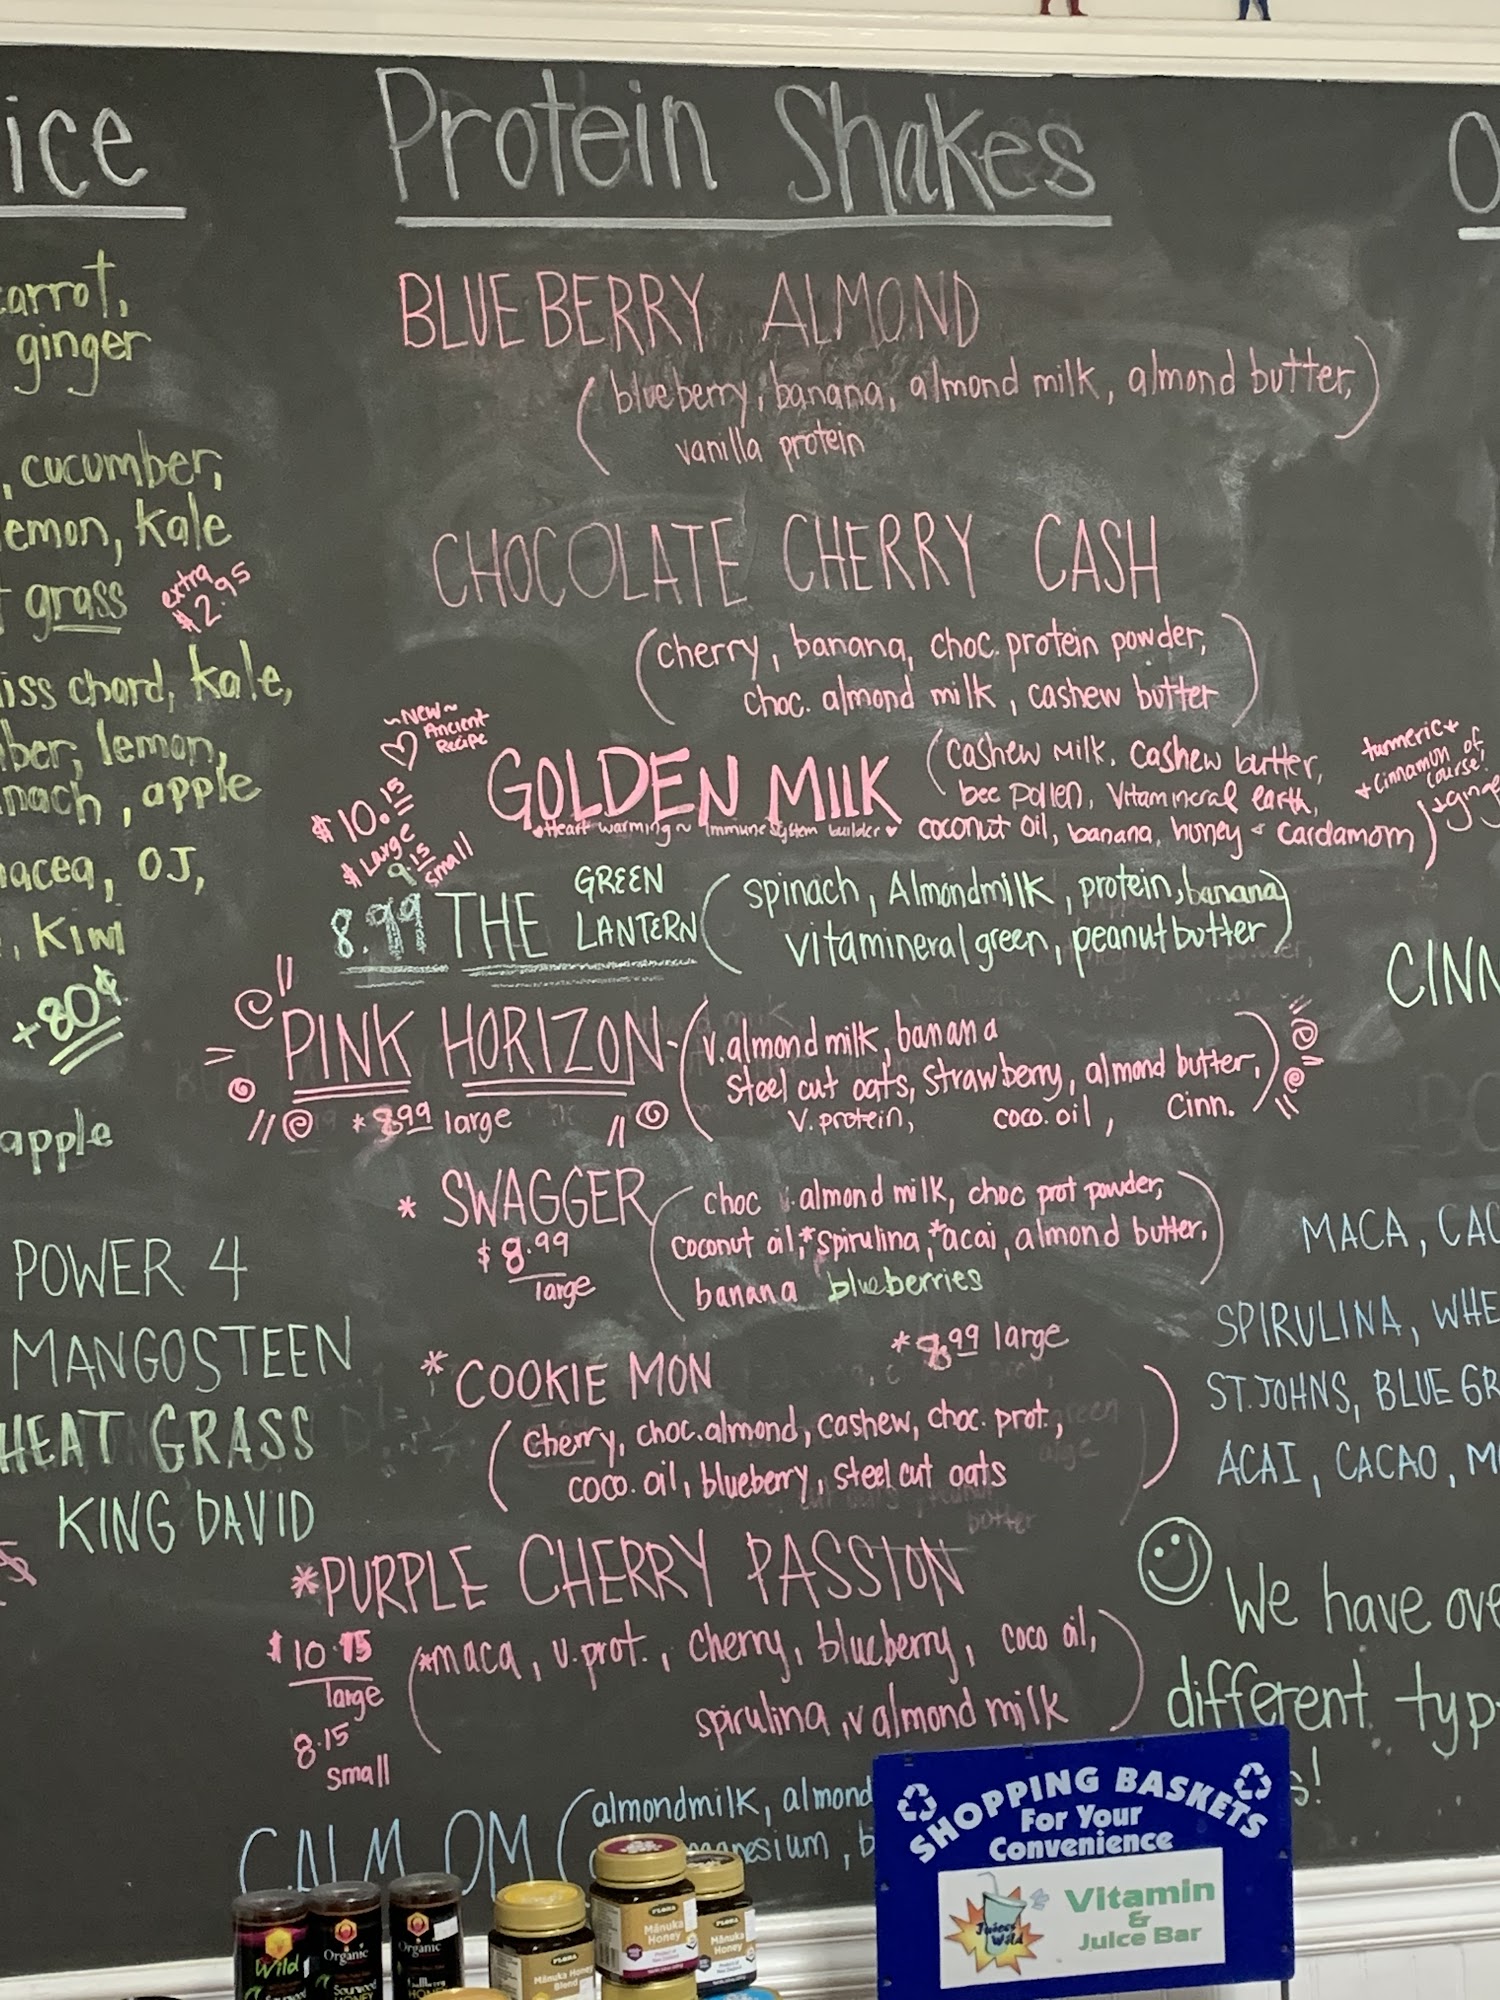 ice
arrot,
ginger
, cucumber,
lemon, kale
grass
extra
$2.95
iss chard, kale,
ber, lemon,
nach, apple
nacea, OJ,
, Kiwi
+80¢
apple
POWER 4
MANGOSTEEN
HEAT GRASS
KING DAVID
Protein Shakes
BLUEBERRY ALMOND
(blueberry, banana, almond milk, almond butter,
vanilla protein
CHOCOLATE CHERRY CASH
(cherry, banana, choc. protein powder,
choc. almond milk, cashew butter)
~New~
Ancient
Recipe
$10.15
Large
$9.15
small
GOLDEN MILK
♥Heart warming ~ Immune System builder♥
(Cashew Milk, Cashew butter,
bee pollen, Vitamineral earth,
coconut oil, banana, honey + Cardamom)
turmeric +
+ cinnamon of
course!
+ ginge
8.99 THE GREEN
LANTERN
(spinach, Almondmilk, protein, banana
Vitamineral green, peanutbutter)
PINK HORIZON-
(v.almond milk, banana
Steel cut oats, Strawberry, almond butter,
v. protein, coco. oil, Cinn.)
* 8.99 large
* SWAGGER
$8.99
large
(choc almond milk, choc prot powder,
coconut oil, *spirulina, *acai, almond butter,
banana blueberries
* COOKIE MON
* 8.99 large
(cherry, choc.almond, cashew, choc. prot.,
coco. oil, blueberry, steel cut oats)
*PURPLE CHERRY PASSION
$10.15
large
8.15
small
(*maca, v.prot., cherry, blueberry, coco oil,
spirulina, v almond milk)
CALM OM
(almondmilk, almond
nesium, b
O
CINN
MACA, CAC
SPIRULINA, WHE
ST.JOHNS, BLUE GR
ACAI, CACAO, M
We have ove
different typ
s!
SHOPPING BASKETS
For Your
Convenience
Juices
Wild
Vitamin
&
Juice Bar
Wild
Organic
Sourwood
HONEY
Organic
HONEY
FLORA
Mānuka Honey
Blend
FLORA
Mānuka
Honey
FLORA
Mānuka
Honey